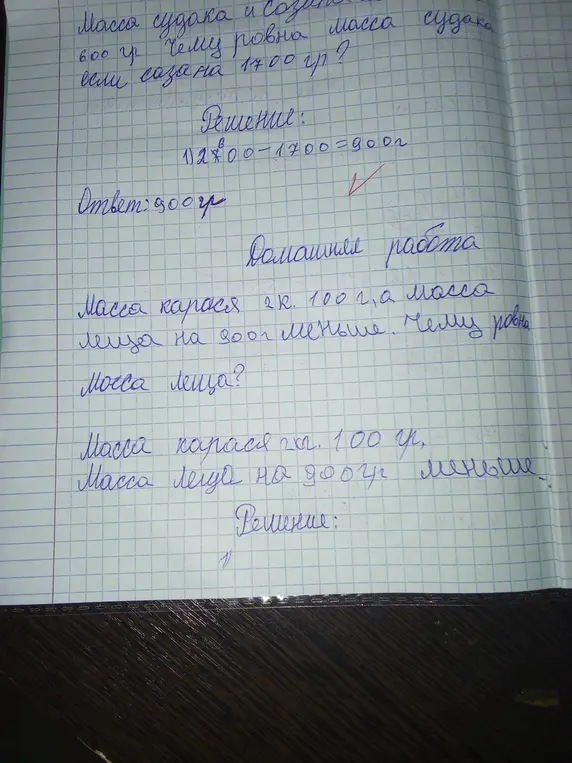 Масса судака и
600 гр Чему ровна масса судака
если сазана 1700 гр?
Решение:
1) 2600-1700=900г
Ответ: 900гр
Домашняя работа
Масса карася 2к. 100 г, а масса
леща на 900г меньше. Чему ровна
Масса леща?
Масса карася 2кг. 100 гр,
Масса леща на 900гр меньше.
Решение:
1)